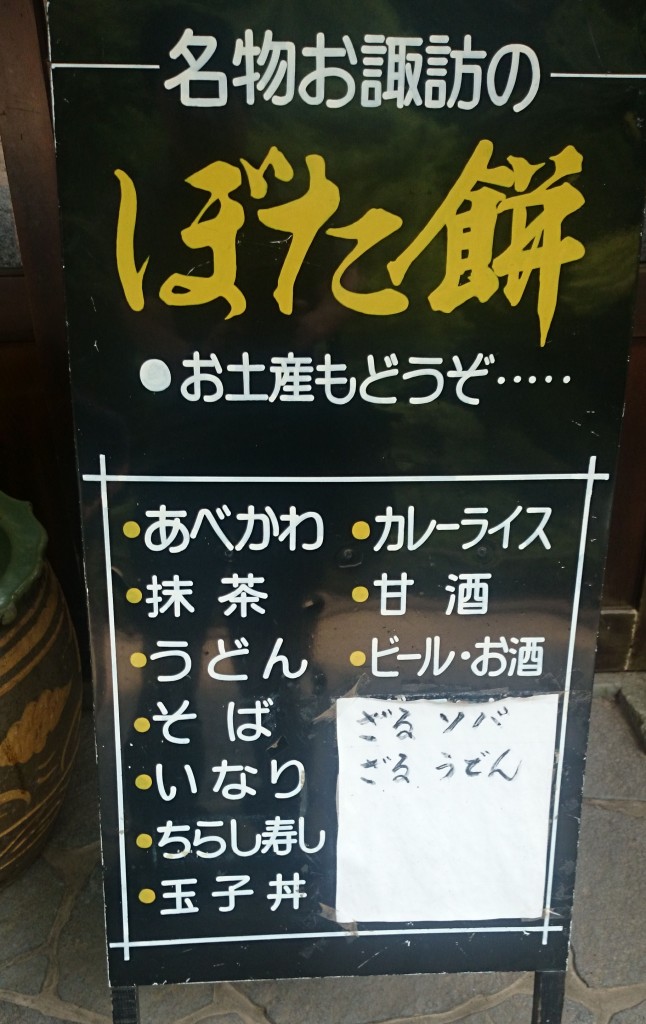 名物お諏訪の
ぼた餅
●お土産もどうぞ‥‥‥
•あべかわ
•抹茶
•うどん
•そば
•いなり
•ちらし寿し
•玉子丼
•カレーライス
•甘酒
•ビール・お酒
ざるソバ
ざるうどん